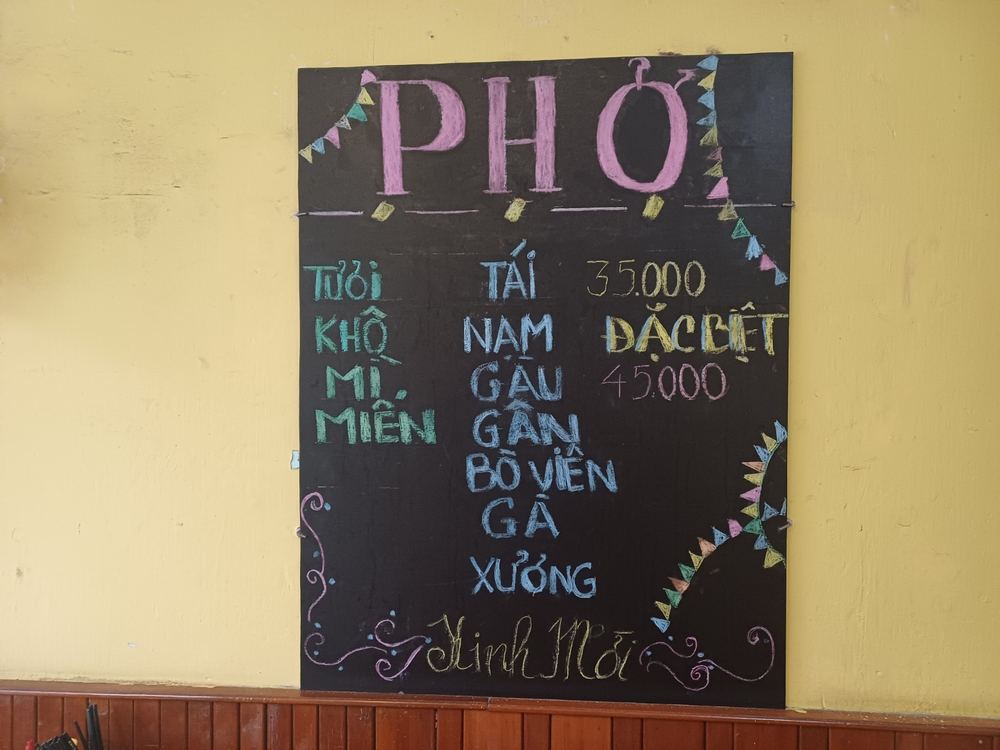 PHỞ
TƯƠI TÁI 35.000
KHÔ NẠM ĐẶC BIỆT
MÌ GẦU 45.000
MIẾN GÂN
BÒ VIÊN
GÀ
XƯƠNG
Kính Mời